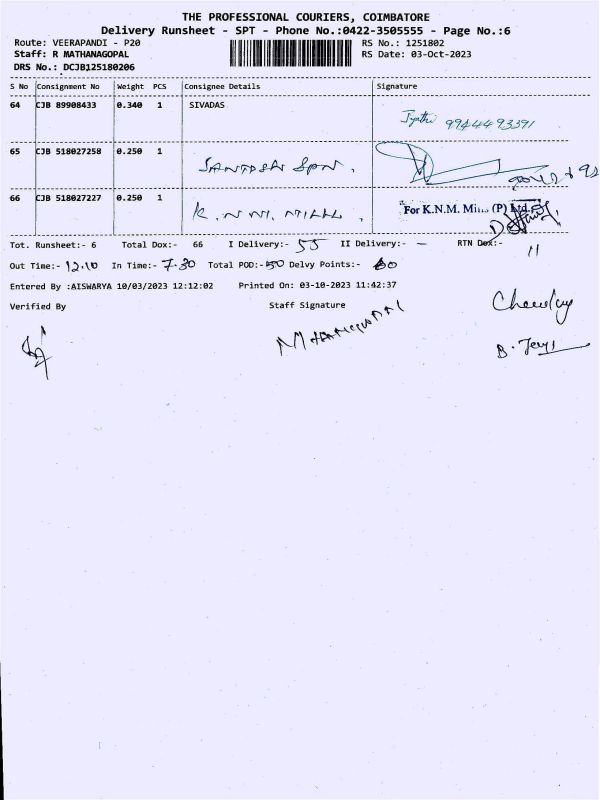 THE PROFESSIONAL COURIERS, COIMBATORE
Delivery Runsheet - SPT - Phone No.:0422-3505555 - Page No.:6
Route: VEERAPANDI - P20 RS No.: 1251802
Staff: R MATHANAGOPAL RS Date: 03-Oct-2023
DRS No.: DCJB125180206
S No Consignment No Weight PCS Consignee Details Signature
64 CJB 89908433 0.340 1 SIVADAS
Jyothi 9944493391
65 CJB 518027258 0.250 1
SANTOSH SPN.
66 CJB 518027227 0.250 1
K.N.M. MILLL. For K.N.M. Mills (P) Ltd.
Tot. Runsheet:- 6 Total Dox:- 66 I Delivery:- 55 II Delivery:- - RTN Dox:- 11
Out Time:- 12.10 In Time:- 7.30 Total POD:- 50 Delvy Points:- 60
Entered By :AISWARYA 10/03/2023 12:12:02 Printed On: 03-10-2023 11:42:37
Verified By Staff Signature